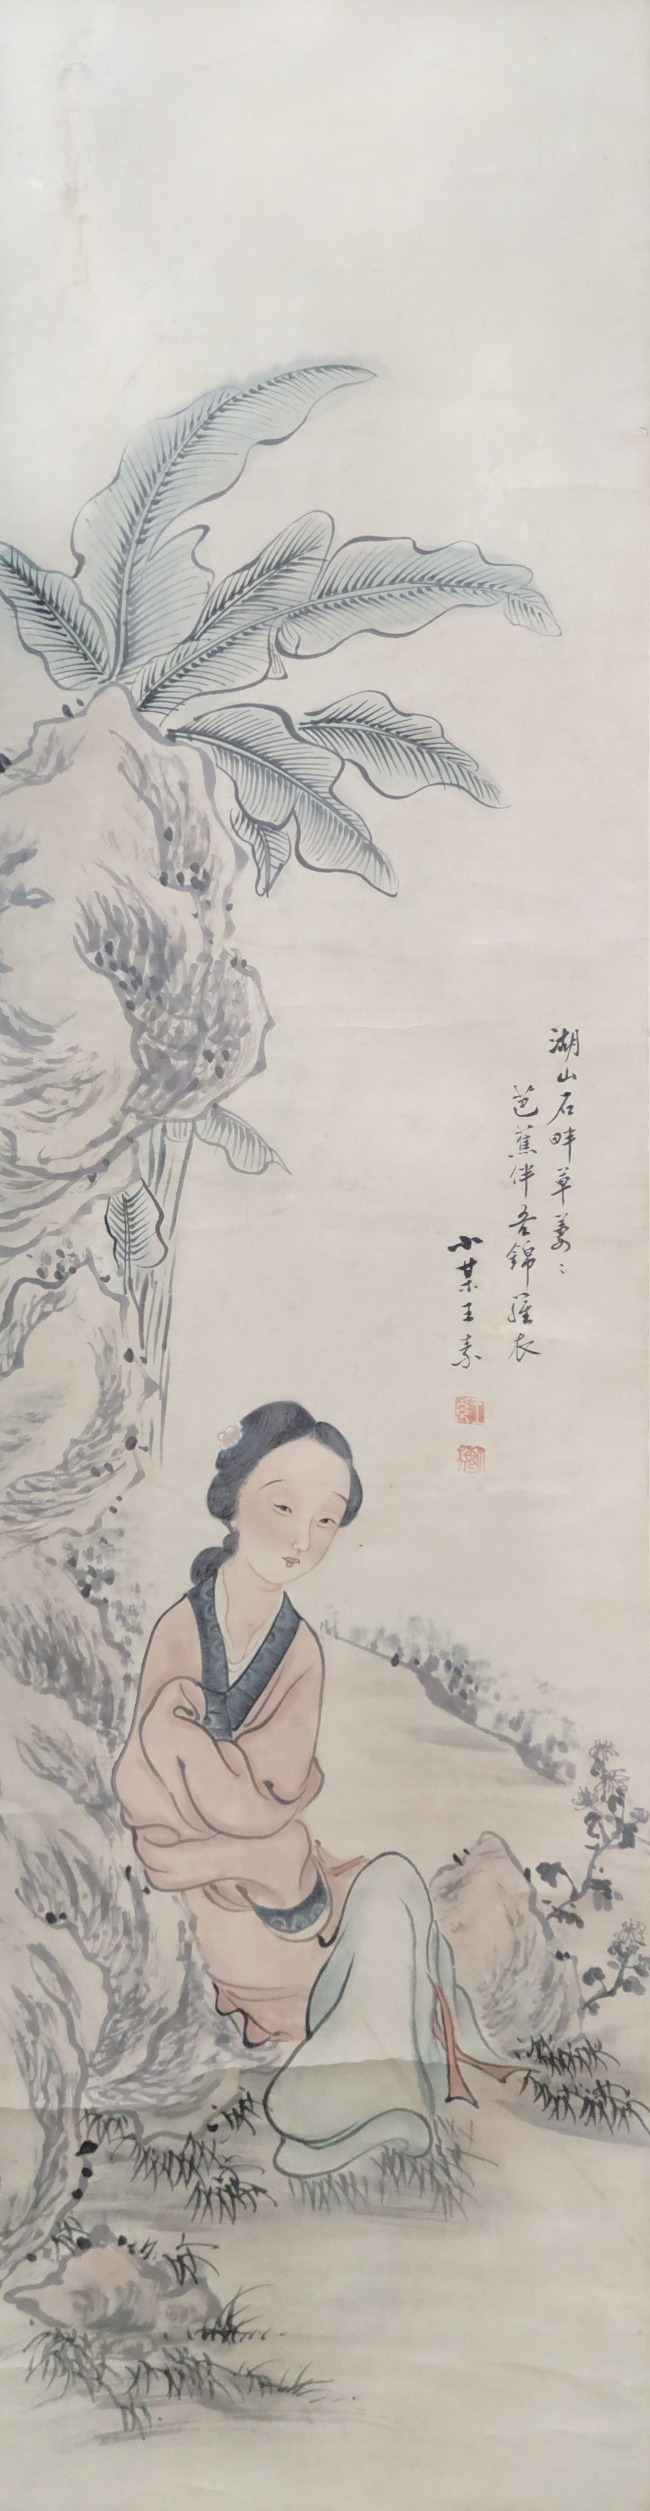 湖山石畔草萋〻
芭蕉伴吾錦羅衣
小某王素